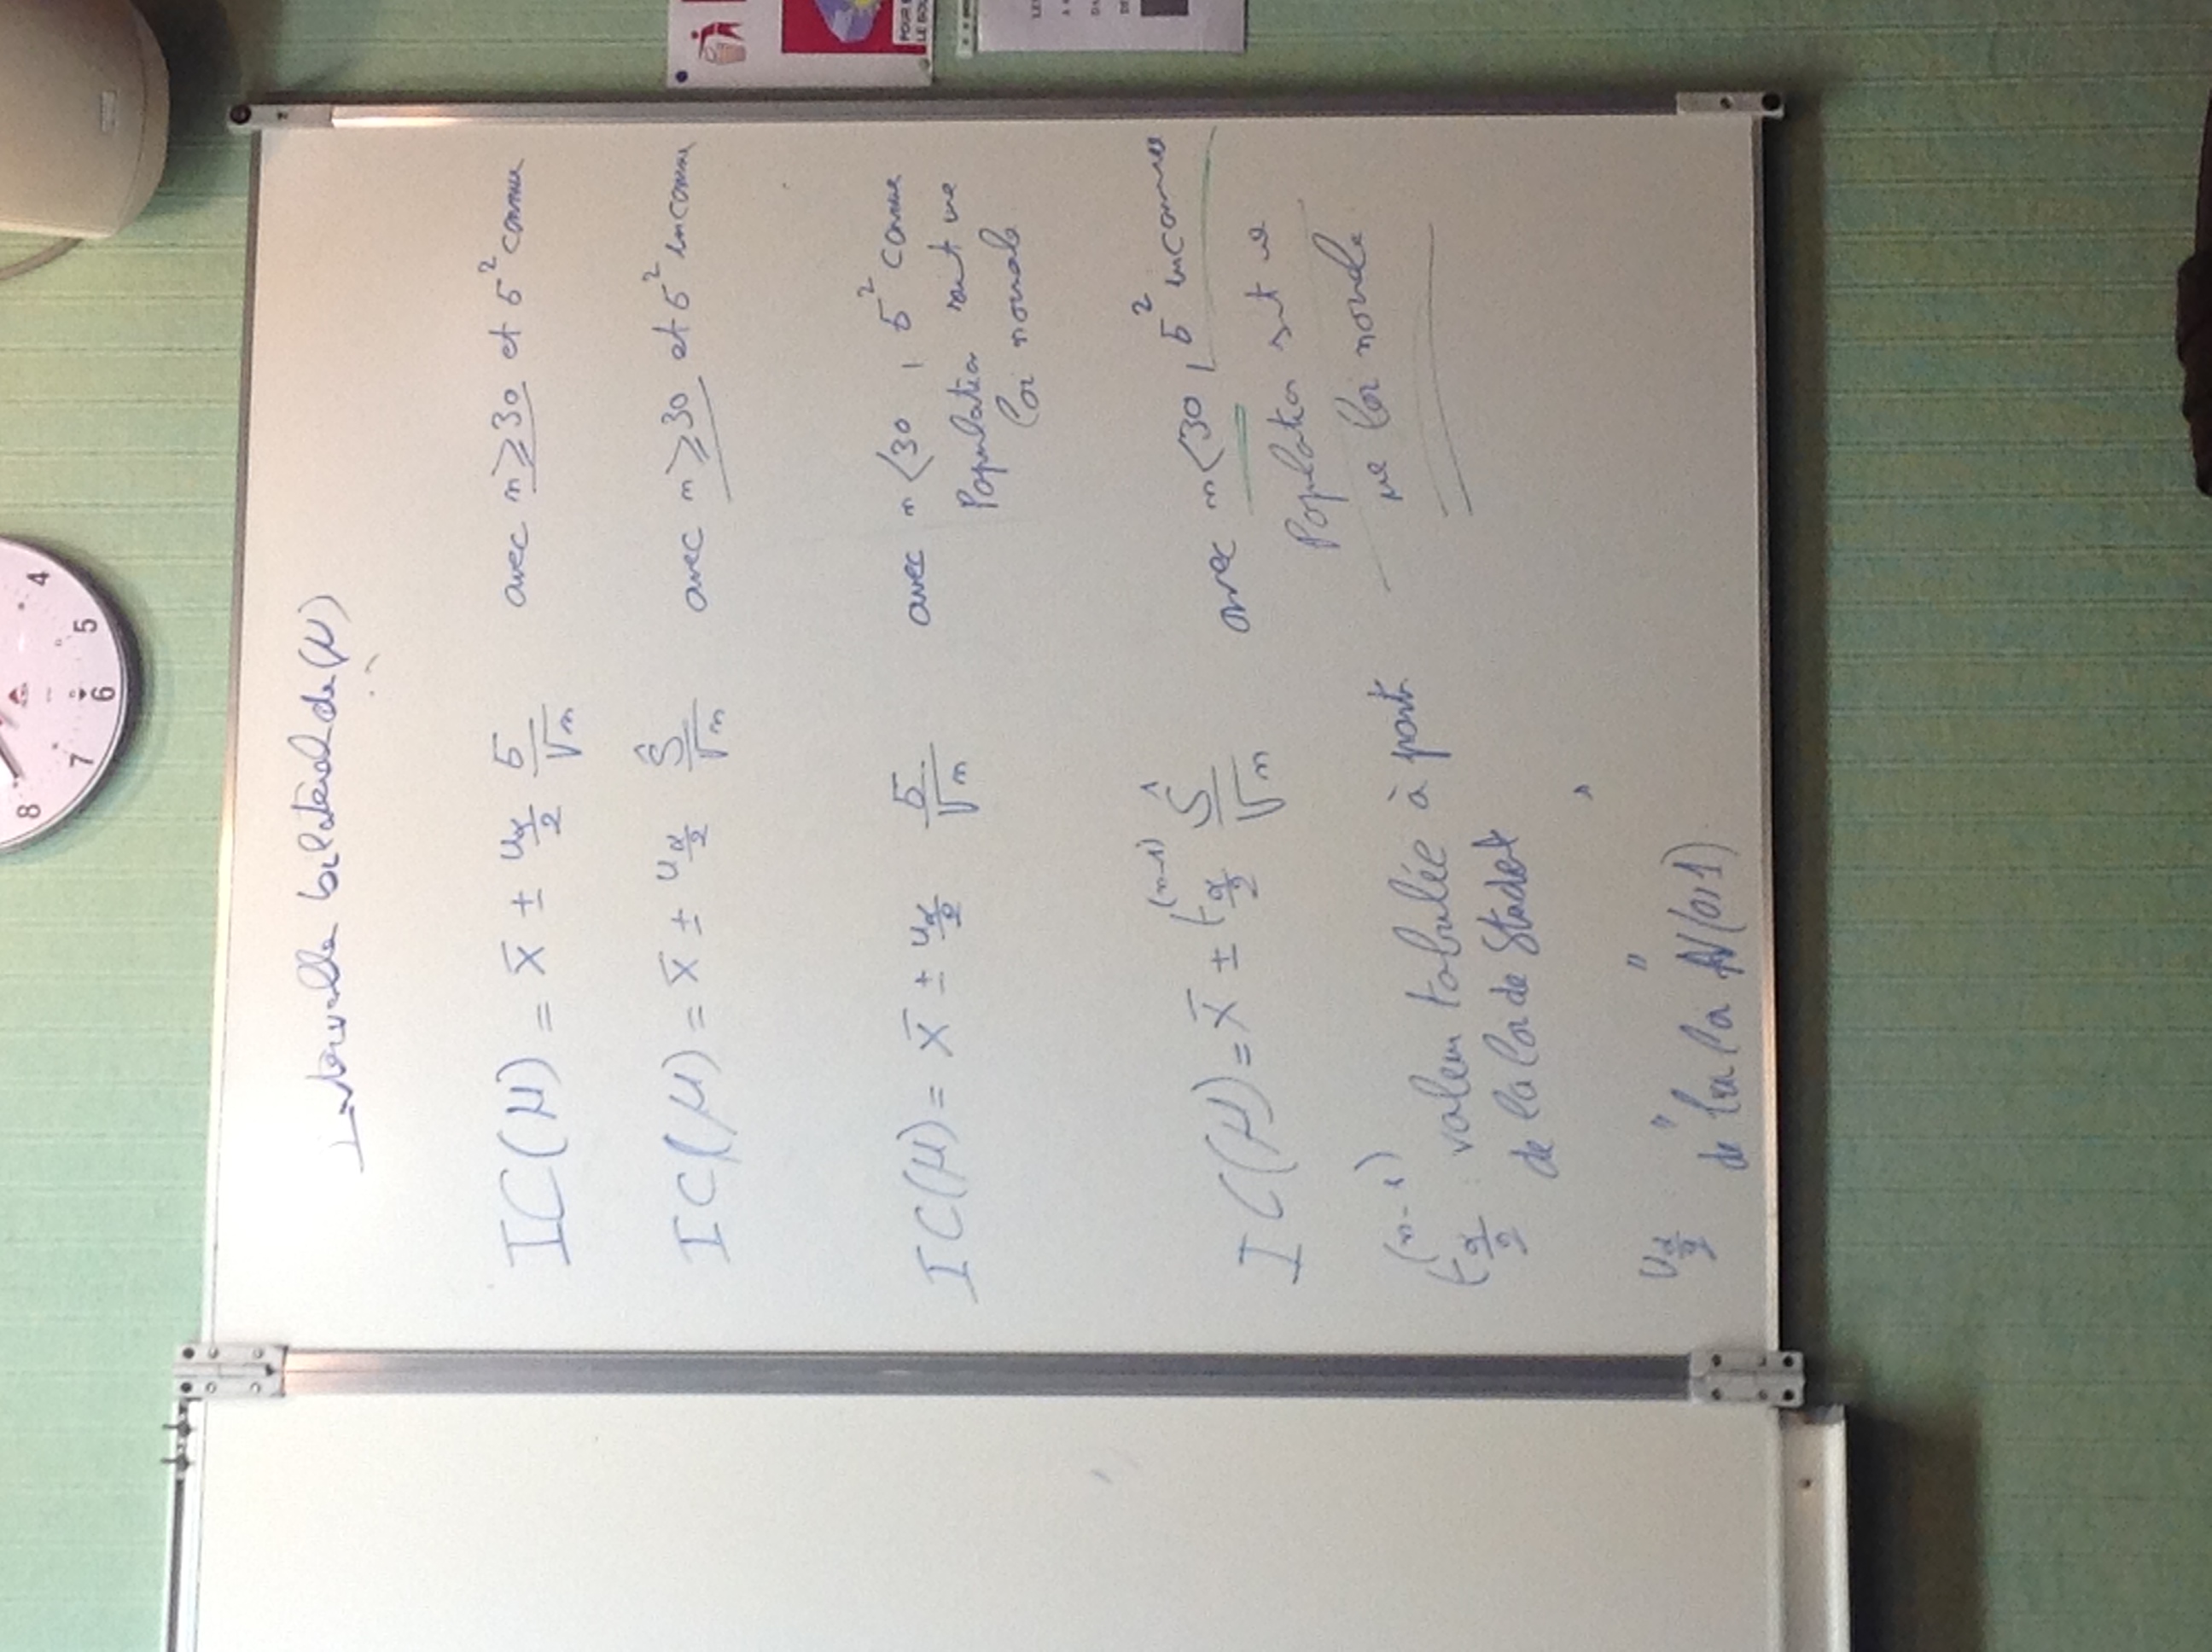 Intervalle bilatéral de (μ)
IC(μ) = x̄ ± u_{α/2} σ/√n avec n ≥ 30 et σ² connue
IC(μ) = x̄ ± u_{α/2} Ŝ/√n avec n ≥ 30 et σ² inconnue
IC(μ) = x̄ ± u_{α/2} σ/√n avec n < 30, σ² connue
Population suit une
loi normale
IC(μ) = x̄ ± t_{α/2}^{(n-1)} Ŝ/√n avec n < 30, σ² inconnue
Population suit
une loi normale
t_{α/2}^{(n-1)} : valeur tabulée à part
de la loi de Student
u_{α/2} " "
de la loi N(0,1)
8 7 6 5 4